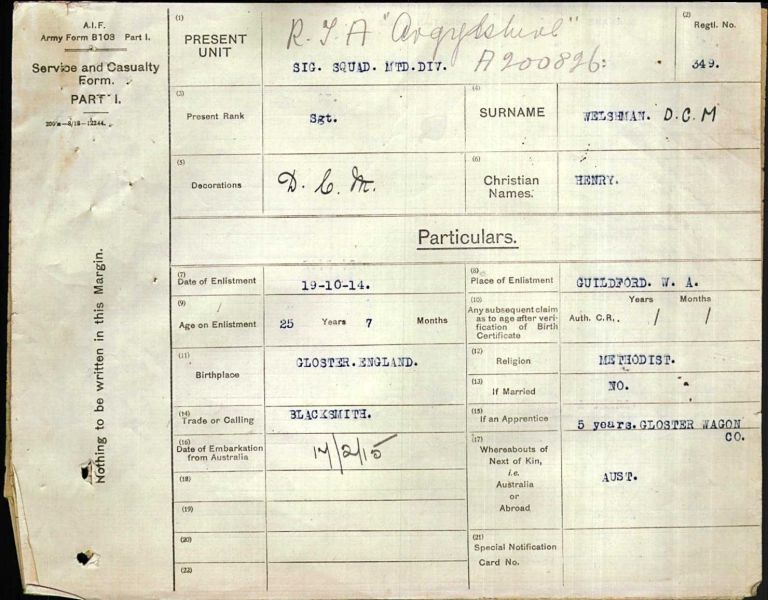 A.I.F.
Army Form B103 Part I.
Service and Casualty
Form.
PART I.
(1)
PRESENT
UNIT
R.T.A "Argyllshire"
SIG. SQUAD. MTD.DIV.
A200826
(2)
Regtl. No.
349.
(3)
Present Rank
Sgt.
(4)
SURNAME
WELSHMAN. D.C.M
(5)
Decorations
D.C.M.
(6)
Christian
Names.
HENRY.
Particulars.
Nothing to be written in this Margin.
(7)
Date of Enlistment
19-10-14.
(8)
Place of Enlistment
GUILDFORD. W. A.
(9)
Age on Enlistment
25 Years 7 Months
(10)
Any subsequent claim
as to age after veri-
fication of Birth
Certificate
Years Months
Auth. C.R.. / /
(11)
Birthplace
GLOSTER.ENGLAND.
(12)
Religion
METHODIST.
(13)
If Married
NO.
(14)
Trade or Calling
BLACKSMITH.
(15)
If an Apprentice
5 years.GLOSTER WAGON
CO.
(16)
Date of Embarkation
from Australia
/2/15
(17)
Whereabouts of
Next of Kin,
i.e.
Australia
or
Abroad
AUST.
(18)
(19)
(20)
(21)
Special Notification
Card No.
(22)